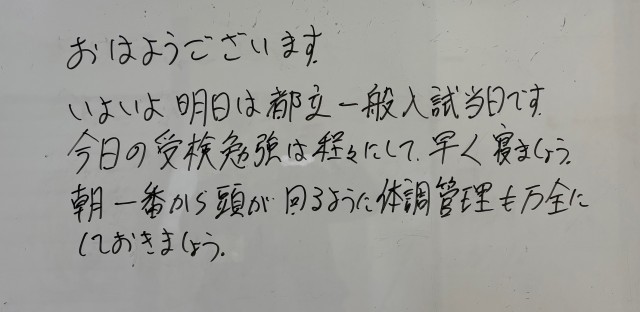 おはようございます
いよいよ明日は都立一般入試当日です
今日の受検勉強は程々にして、早く寝ましょう。
朝一番から頭が回るように体調管理も万全に
しておきましょう。